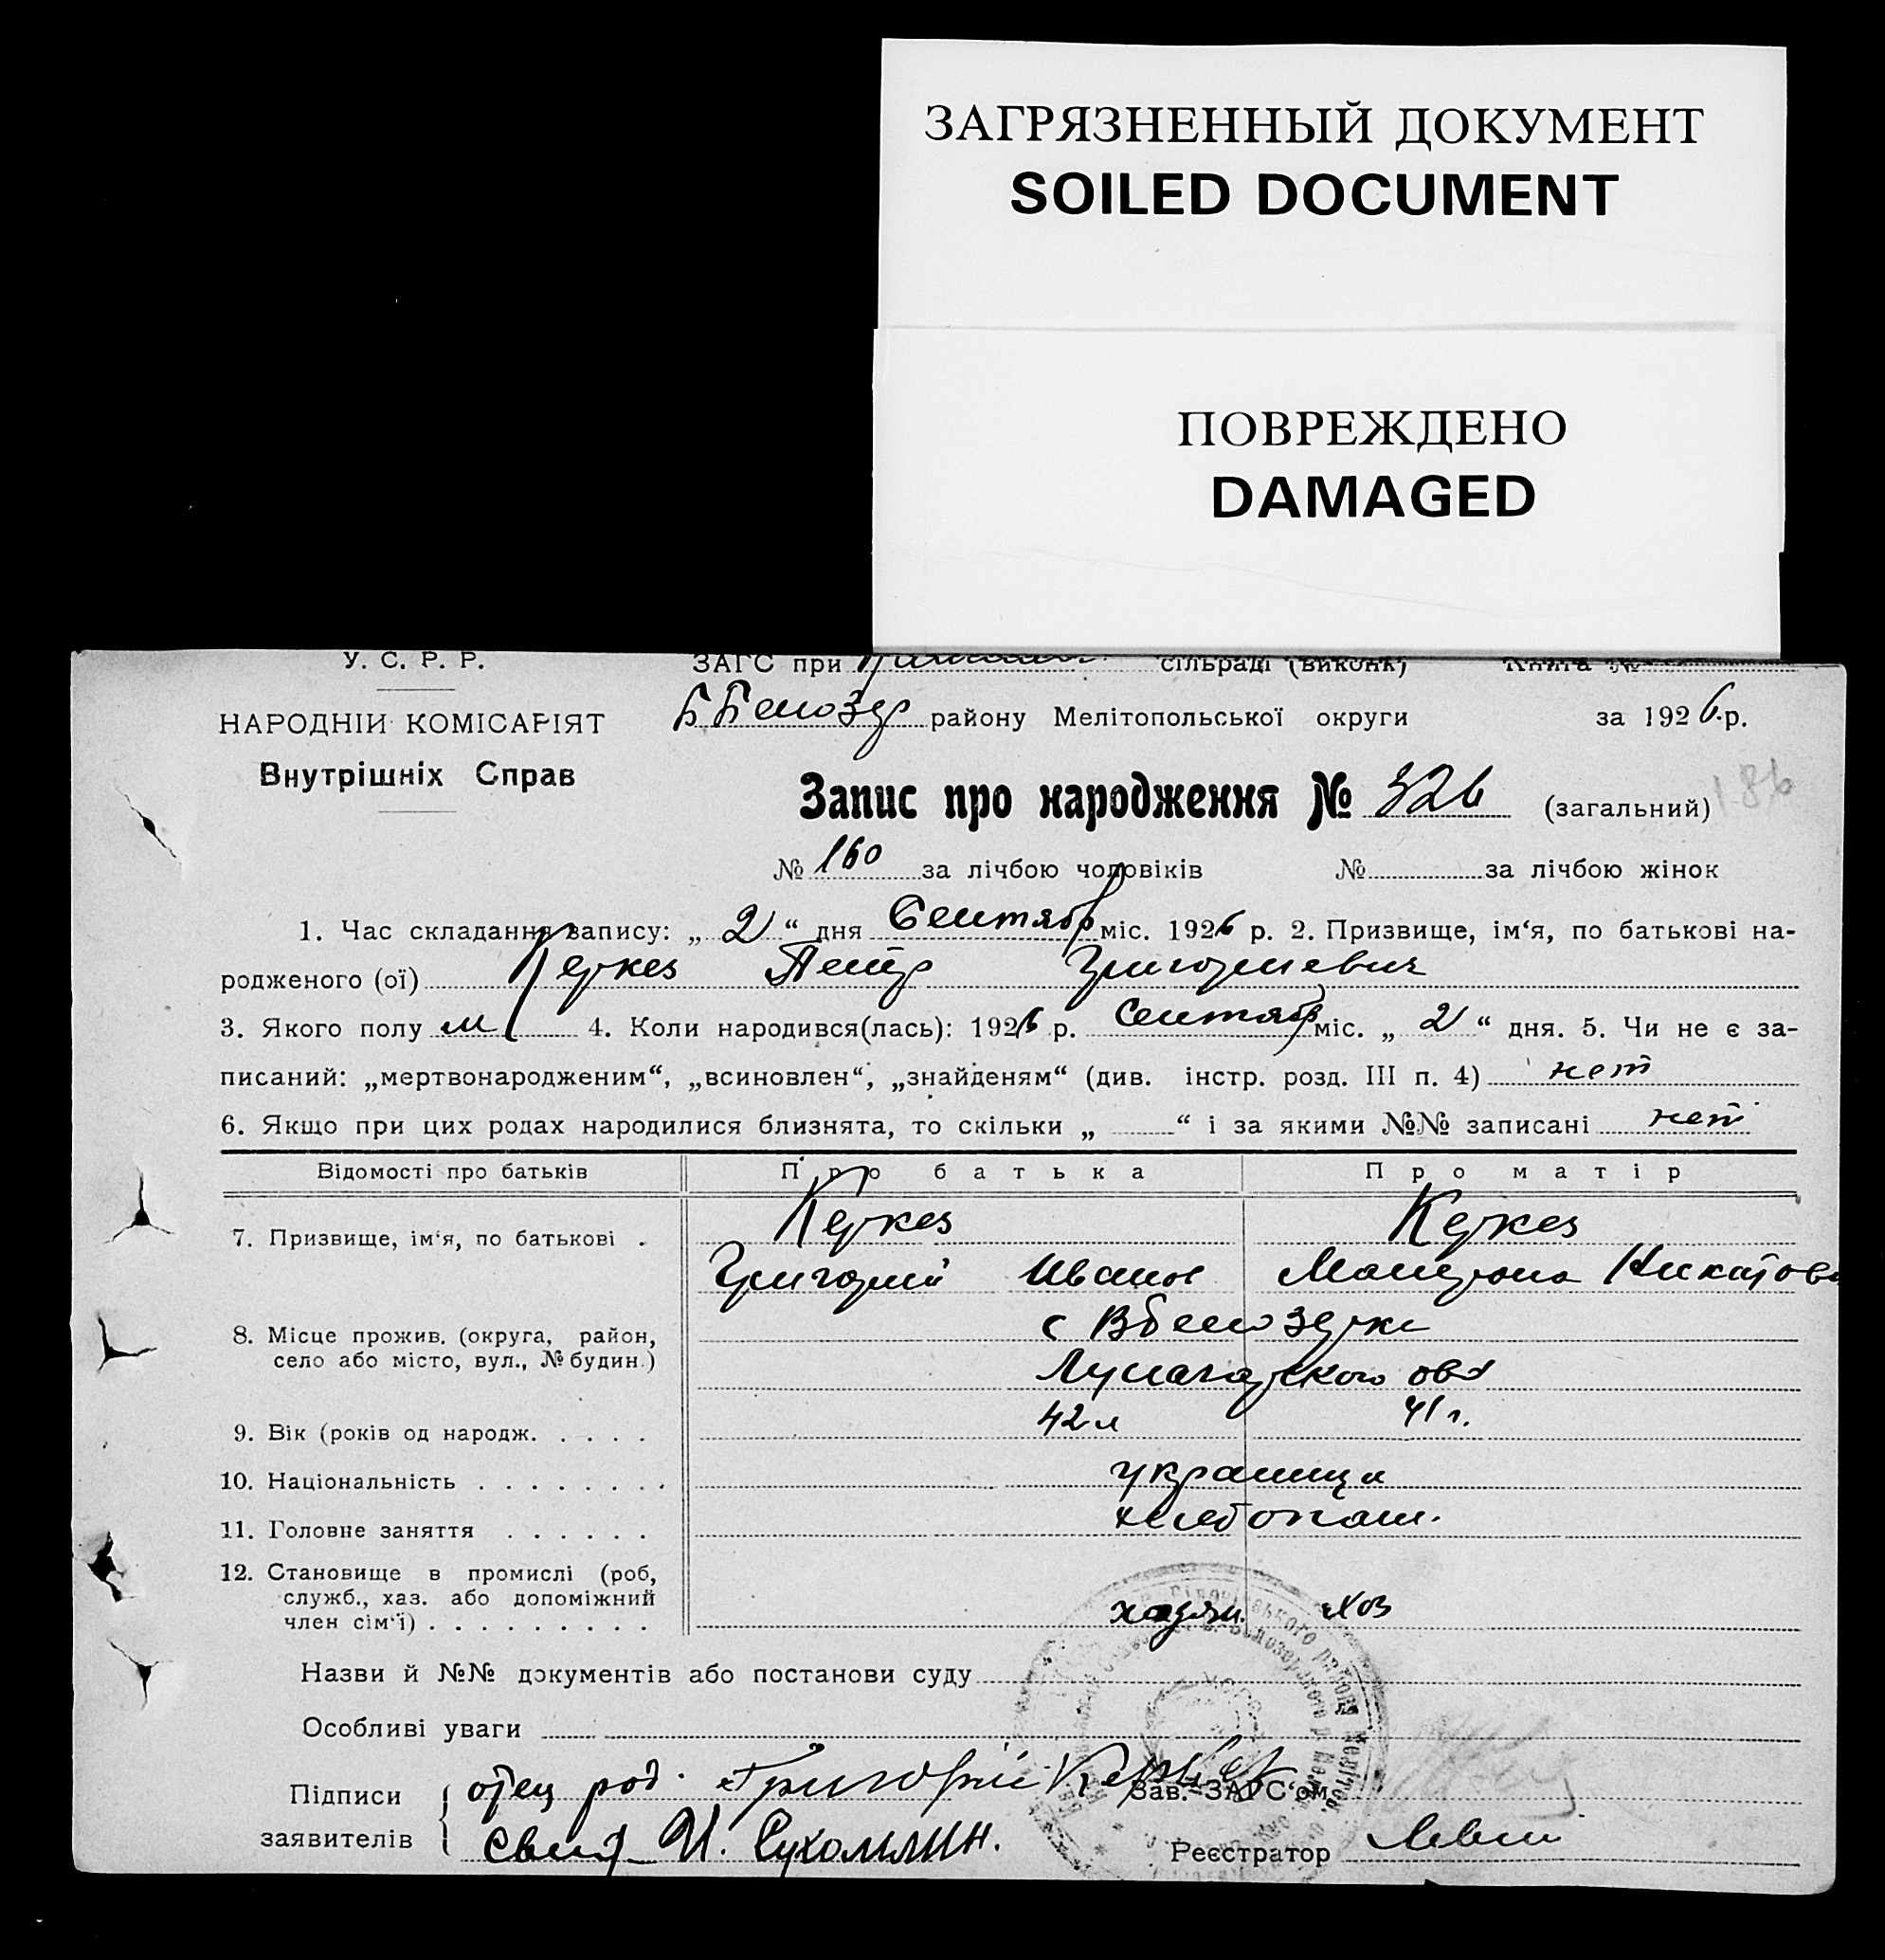 ЗАГРЯЗНЕННЫЙ ДОКУМЕНТ
SOILED DOCUMENT
ПОВРЕЖДЕНО
DAMAGED
У. С. Р. Р. ЗАГС при сільраді (виконк) Книга №
НАРОДНІЙ КОМІСАРІЯТ району Мелітопольської округи за 1926 р.
Внутрішніх Справ
Запис про народження № 326 (загальний) 186
№ 160 за лічбою чоловіків № за лічбою жінок
1. Час складання запису: „ 2 “ дня Сентябр міс. 1926 р. 2. Призвище, ім‘я, по батькові на-
родженого (ої) Керкез Петр Григориевич
3. Якого полу м 4. Коли народився(лась): 1926 р. Сентябр міс. „ 2 “ дня. 5. Чи не є за-
писаний: „мертвонародженим“, „всиновлен“, „знайденям“ (див. інстр. розд. III п. 4) нет
6. Якщо при цих родах народилися близнята, то скільки „ “ і за якими №№ записані нет
Відомості про батьків Про батька Про матір
7. Призвище, ім‘я, по батькові . Керкез Керкез
Григорий Иванов
8. Місце прожив. (округа, район,
село або місто, вул., № будин.)
9. Вік (років од народж. . . . . 42 л 41 г.
10. Національність . . . . . . . . украинци
11. Головне заняття . . . . . . хлебопаш.
12. Становище в промислі (роб,
служб., хаз. або допоміжний
член сім‘ї) . . . . . . . . .
Назви й №№ документів або постанови суду
Особливі уваги
Підписи отец род. Григорий Керкез Зав. ЗАГС‘ом
заявителів Свид И. Сухомлин. Реєстратор